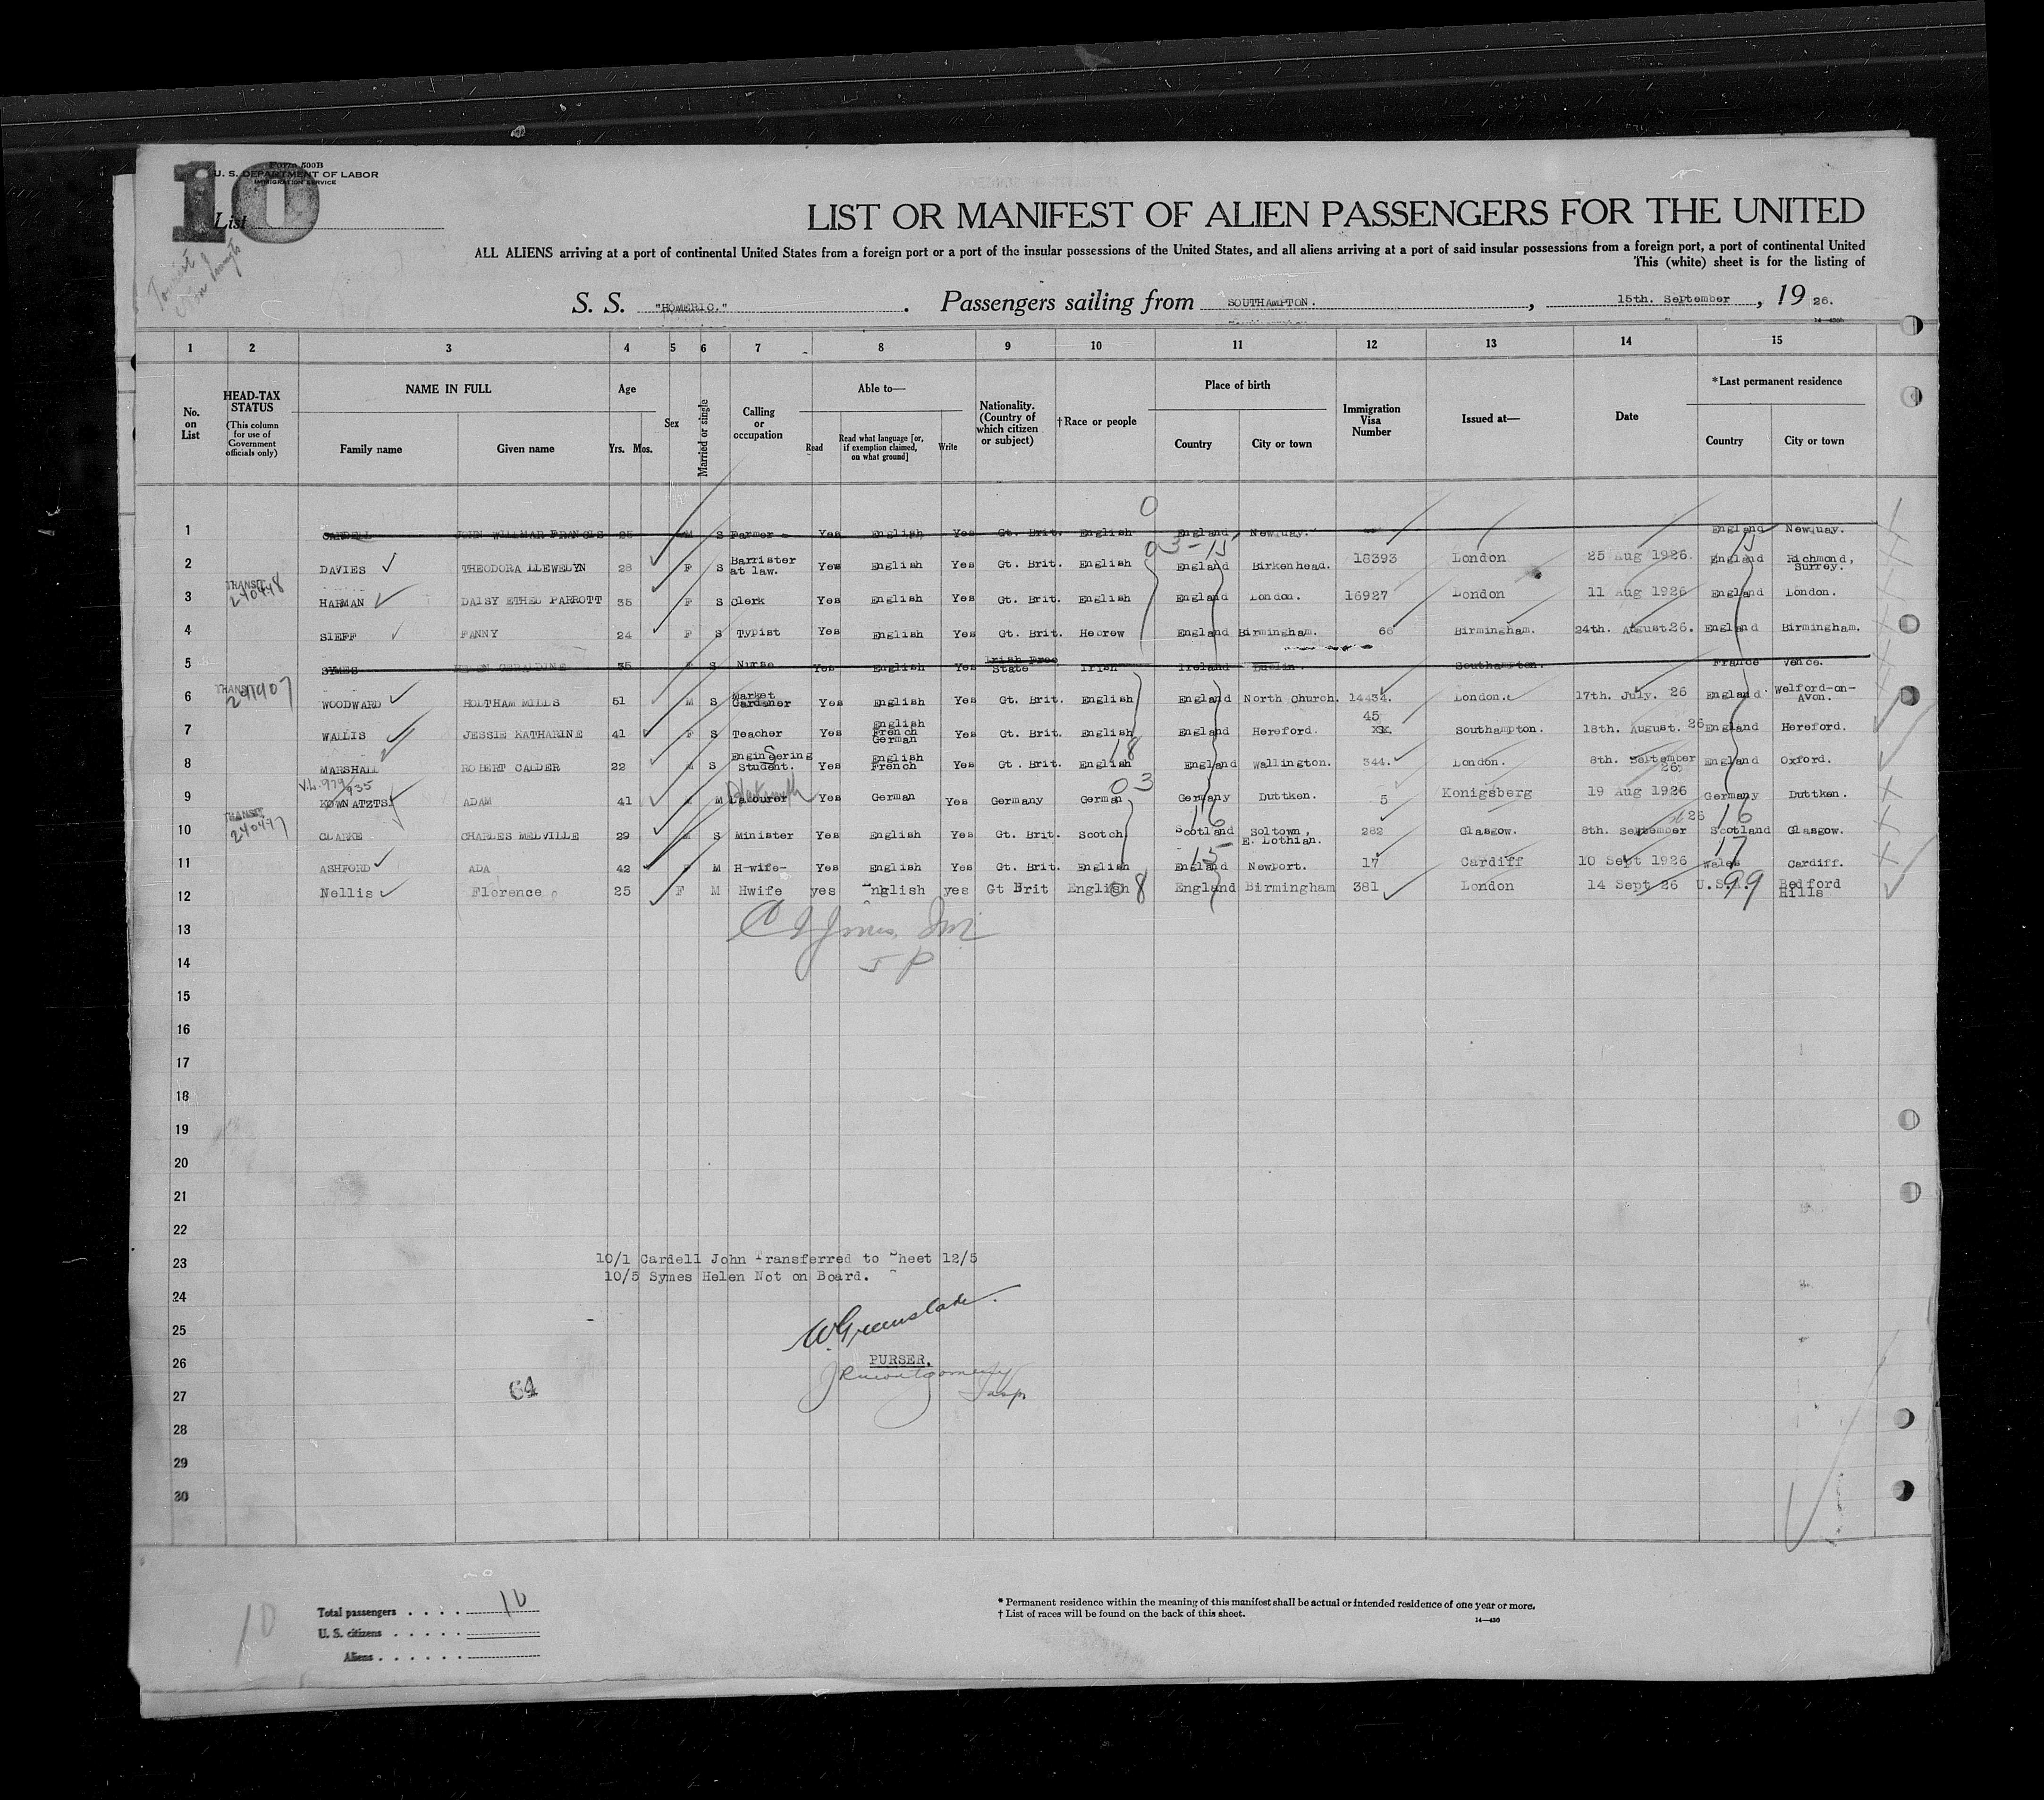 10
Form 500B
U. S. DEPARTMENT OF LABOR
IMMIGRATION SERVICE
List
LIST OR MANIFEST OF ALIEN PASSENGERS FOR THE UNITED
ALL ALIENS arriving at a port of continental United States from a foreign port or a port of the insular possessions of the United States, and all aliens arriving at a port of said insular possessions from a foreign port, a port of continental United
This (white) sheet is for the listing of
S. S. "HOMERIC." Passengers sailing from SOUTHAMPTON. , 15th. September , 19 26.
1 2 3 4 5 6 7 8 9 10 11 12 13 14 15
No. on List HEAD-TAX STATUS (This column for use of Government officials only) NAME IN FULL Family name Given name Age Yrs. Mos. Sex Married or single Calling or occupation Able to— Read Read what language [or, if exemption claimed, on what ground] Write Nationality. (Country of which citizen or subject) †Race or people Place of birth Country City or town Immigration Visa Number Issued at— Date *Last permanent residence Country City or town
1 CARDELL JOHN WILLMAR FRANCIS 25 M S Farmer Yes English Yes Gt. Brit. English England Newquay. England Newquay.
2 DAVIES THEODORA LLEWELYN 28 F S Barrister at law. Yes English Yes Gt. Brit. English England Birkenhead. 18393 London 25 Aug 1926. England Richmond, Surrey.
3 TRANSIT 240448 HARMAN DAISY ETHEL PARROTT 35 F S Clerk Yes English Yes Gt. Brit. English England London. 16927 London 11 Aug 1926 England London.
4 SIEFF FANNY 24 F S Typist Yes English Yes Gt. Brit. Hebrew England Birmingham. 66 Birmingham. 24th. August 26. England Birmingham.
5 SYMES HELEN GERALDINE 35 F S Nurse Yes English Yes Irish Free State Irish Ireland Dublin. Southampton. France Vence.
6 TRANSIT WOODWARD HOLTHAM MILLS 51 M S Market Gardener Yes English Yes Gt. Brit. English England North Church. 14434. London. 17th. July. 26 England. Welford-on-Avon.
7 WALLIS JESSIE KATHARINE 41 F S Teacher Yes English French German Yes Gt. Brit. English England Hereford. 45 Southampton. 18th. August. 26 England Hereford.
8 MARSHALL ROBERT CALDER 22 M S Engineering Student. Yes English French Yes Gt. Brit. English England Wallington. 344. London. 8th. September 26. England Oxford.
9 KOWNATZTSI ADAM 41 M M Labourer Yes German Yes Germany German Germany Duttken. 5 Konigsberg 19 Aug 1926 Germany Duttken.
10 TRANSIT 240497 CLARKE CHARLES MELVILLE 29 M S Minister Yes English Yes Gt. Brit. Scotch Scotland Soltown, E. Lothian. 282 Glasgow. 8th. September 26 Scotland Glasgow.
11 ASHFORD ADA 42 F M H-wife- Yes English Yes Gt. Brit. English England Newport. 17 Cardiff 10 Sept 1926 Wales Cardiff.
12 Nellis Florence 25 F M Hwife yes English yes Gt Brit English England Birmingham 381 London 14 Sept 26 U.S.A. Bedford Hills
13
14
15
16
17
18
19
20
21
22
23
10/1 Cardell John Transferred to Sheet 12/5
10/5 Symes Helen Not on Board.
24
25
W. Greenslade.
26
PURSER,
JR Montgomery
Insp.
27
64
28
29
30
10
Total passengers . . . . 10
U. S. citizens . . . . .
Aliens . . . . . .
* Permanent residence within the meaning of this manifest shall be actual or intended residence of one year or more.
† List of races will be found on the back of this sheet.
14—430